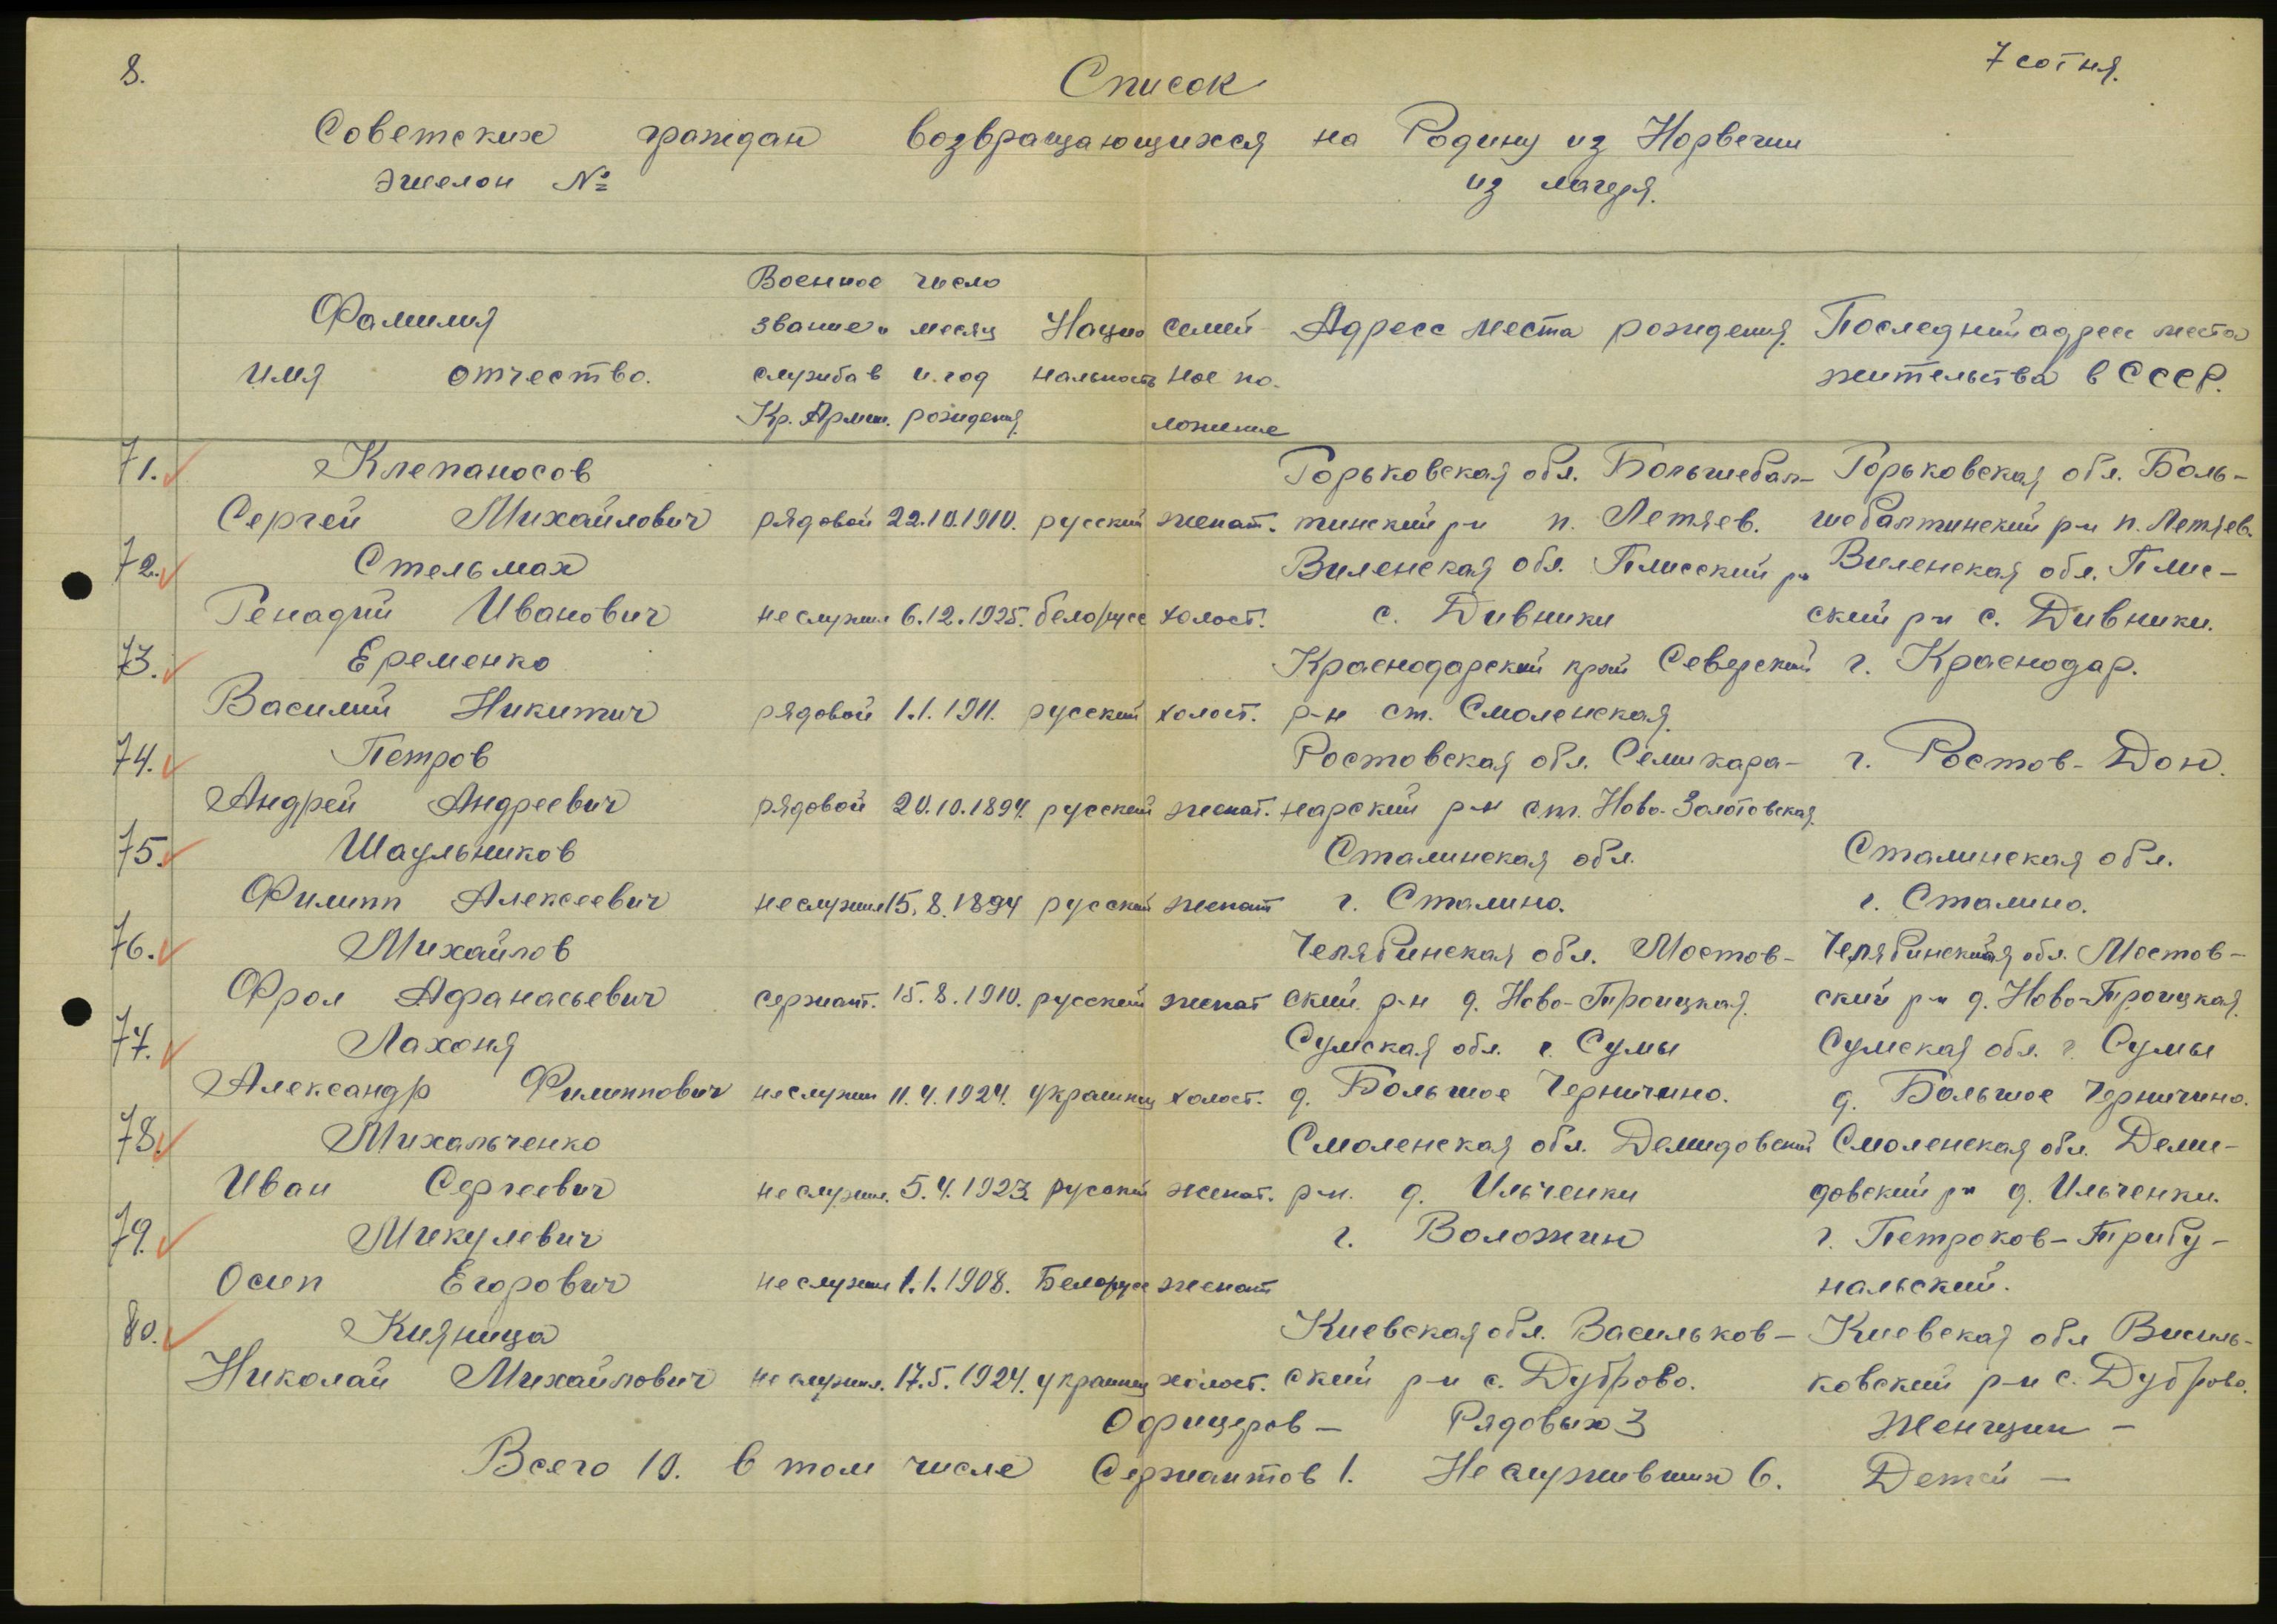 8.
7 сотня.
Список
Советских граждан возвращающихся на Родину из Норвегии
эшелон № из лагеря.
Военное число
Фамилия звание и месяц Нацио семей- Адресс места рождения. Последний адресс места
имя отчество. служба в и год нальность ное по- жительства в СССР.
Кр. Армии. рождения. ложение
71. Клепаносов Горьковская обл. Большебол- Горьковская обл. Боль-
Сергей Михайлович рядовой 22.10.1910. русский женат. тинский р-н п. Летяев. шеболтинский р-н п. Летяев.
72. Стельмах Виленская обл. Плисский р-н Виленская обл. Плис-
Генадий Иванович не служил 6.12.1925. белорусс холост. с. Дивники ский р-н с. Дивники.
73. Еременко Краснодарский край Северский г. Краснодар.
Василий Никитич рядовой 1.1.1911. русский холост. р-н ст. Смоленская.
74. Петров Ростовская обл. Семикара- г. Ростов-Дон.
Андрей Андреевич рядовой 20.10.1894. русский женат. карский р-н ст. Ново-Золотовская.
75. Шаульников Сталинская обл. Сталинская обл.
Филипп Алексеевич не служил 15.8.1894 русский женат г. Сталино. г. Сталино.
76. Михайлов Челябинская обл. Мостов- Челябинская обл. Мостов-
Фрол Афанасьевич сержант. 15.8.1910. русский женат ский р-н д. Ново-Троицкая. ский р-н д. Ново-Троицкая.
77. Лахоня Сумская обл. г. Сумы Сумская обл. г. Сумы
Александр Филиппович не служил 11.4.1924. украинец холост. д. Большое Черничино. д. Большое Черничино.
78. Михальченко Смоленская обл. Демидовский Смоленская обл. Деми-
Иван Сергеевич не служил. 5.4.1923. русский женат. р-н. д. Ильченки довский р-н д. Ильченки.
79. Микулевич г. Воложин г. Петроков-Трибу-
Осип Егорович не служил 1.1.1908. Белорусс женат нальский.
80. Кияница Киевская обл. Васильков- Киевская обл Василь-
Николай Михайлович не служил. 17.5.1924. украинец холост. ский р-н с. Дуброво. ковский р-н с. Дуброво.
Офицеров - Рядовых 3 Женщин -
Всего 10. в том числе Сержантов 1. Не служивших 6. Детей -